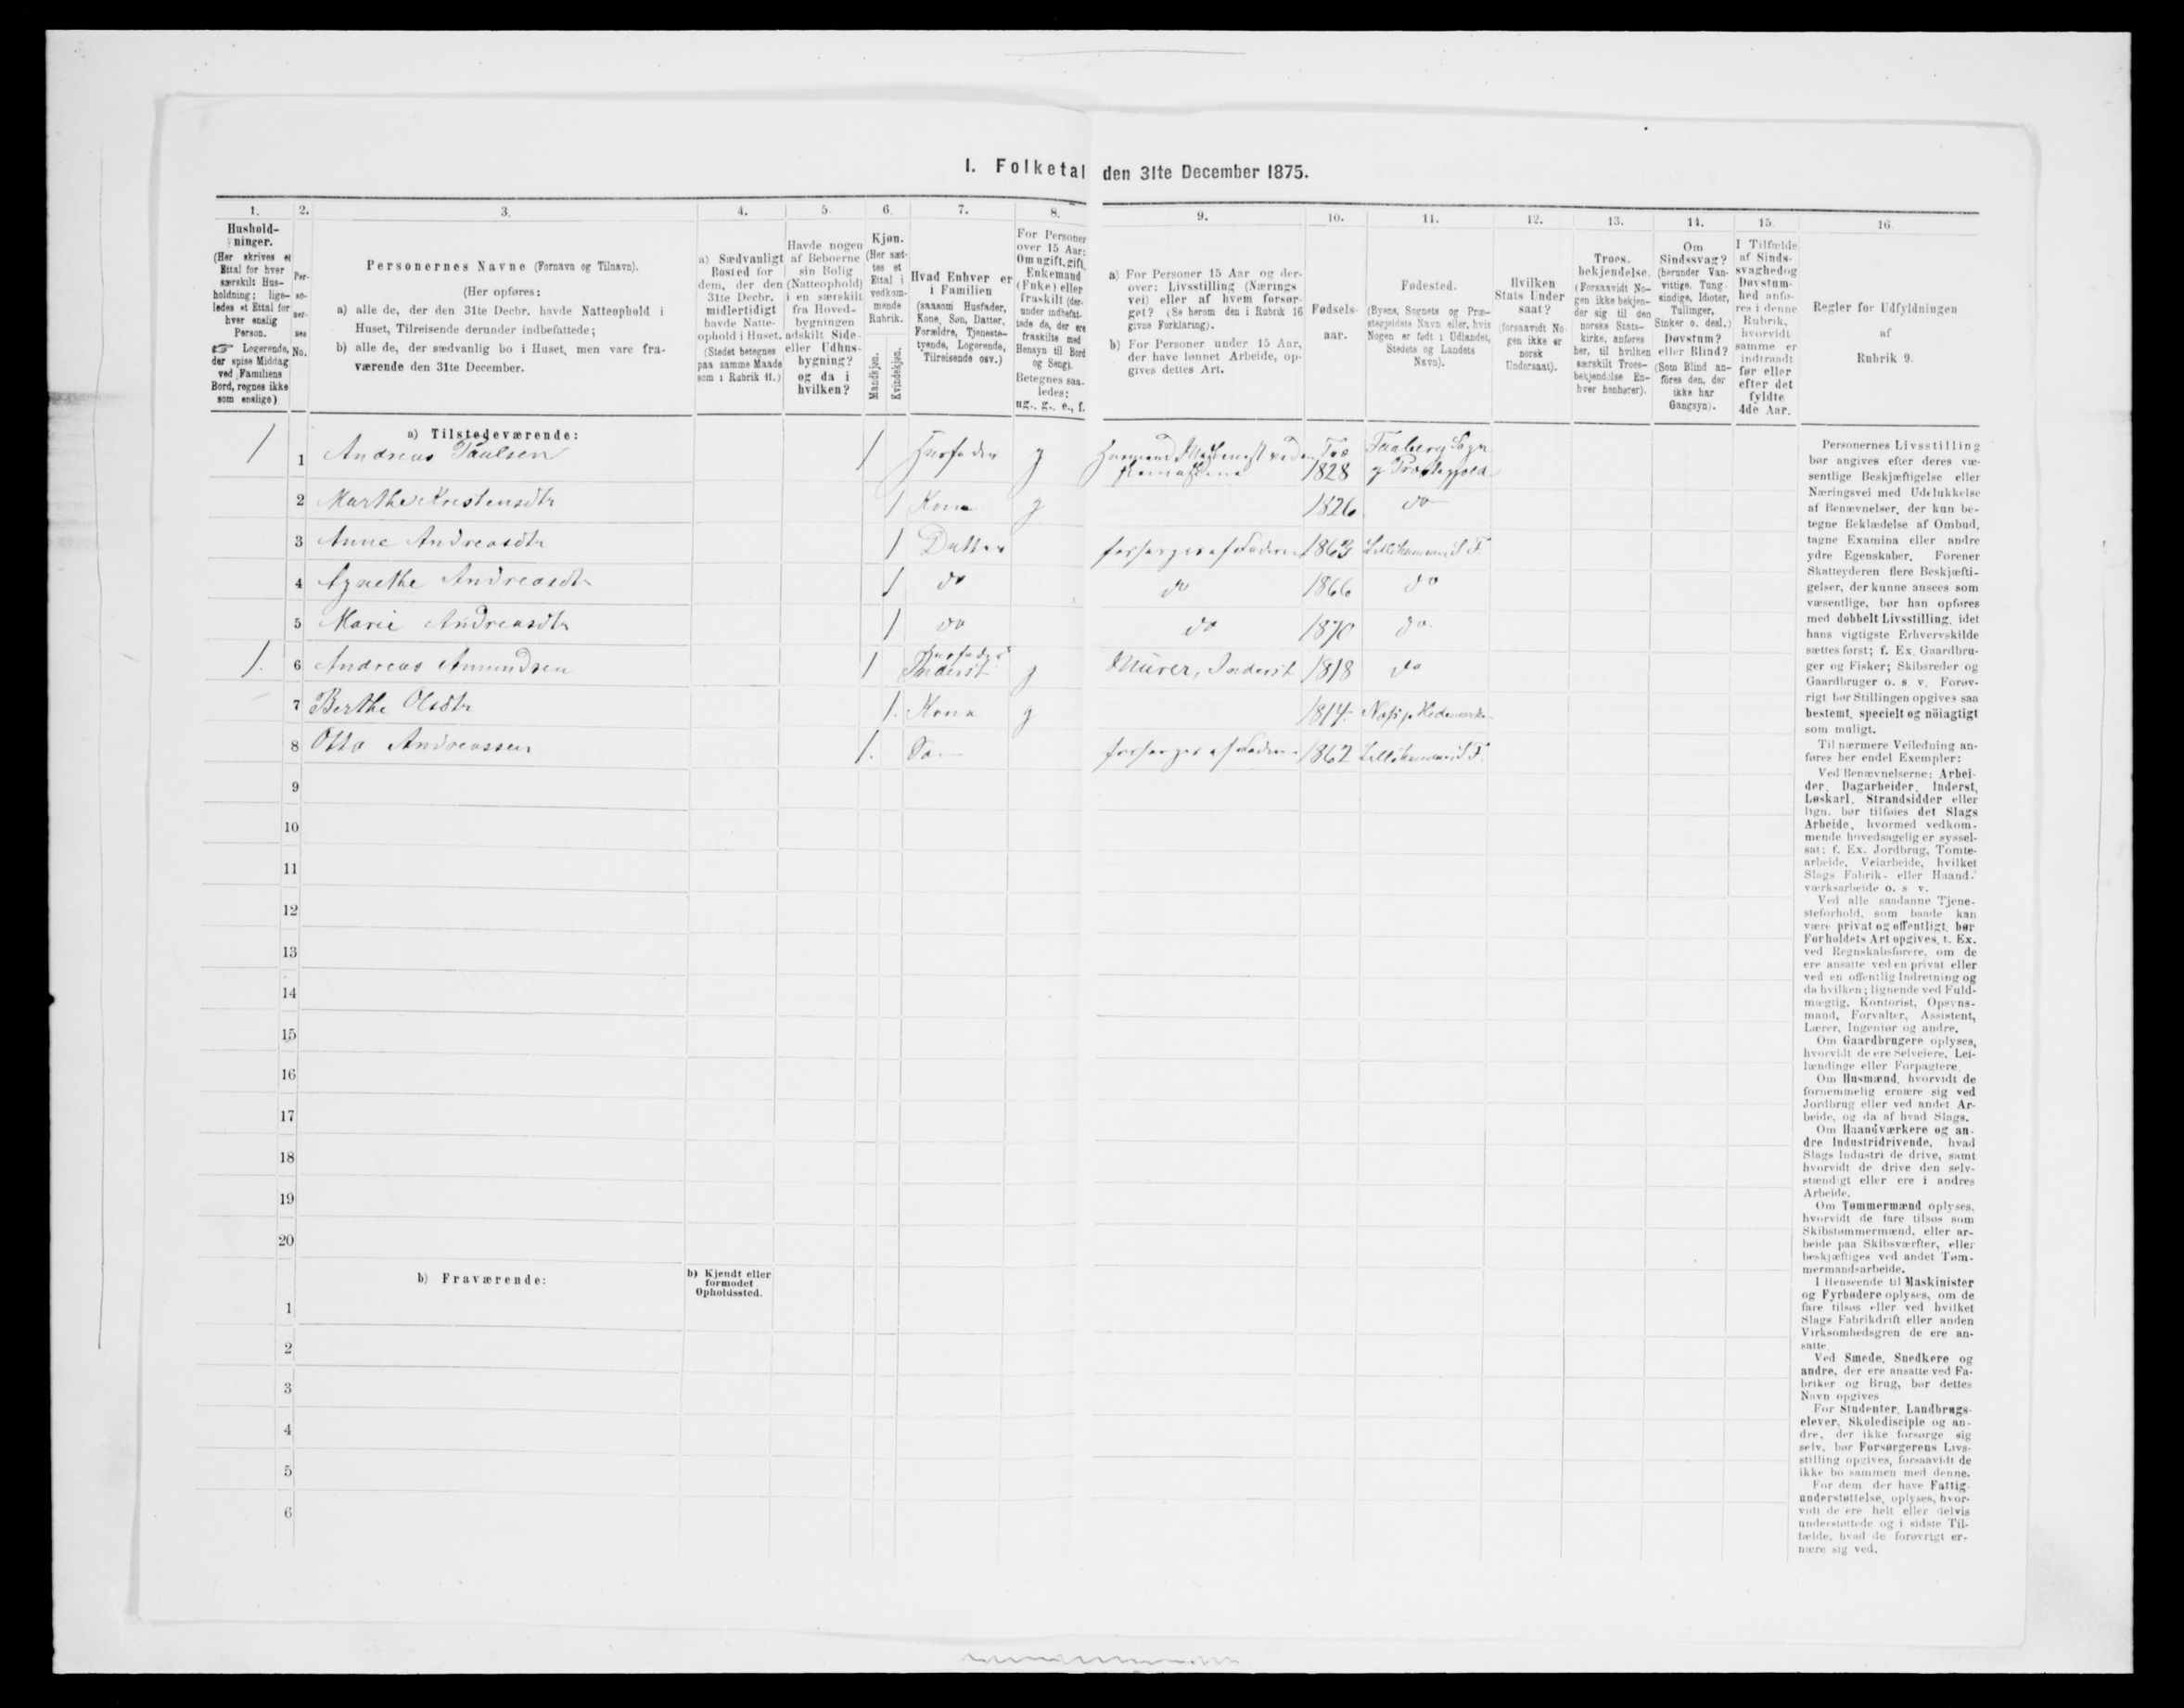 I. Folketal den 31te December 1875.
1. 2. 3. 4. 5. 6. 7. 8. 9. 10. 11. 12. 13. 14. 15. 16.
Hushold-
ninger.
(Her skrives et
Ettal for hver
særskilt Hus-
holdning; lige-
ledes et Ettal for
hver enslig
Person.
☞ Logerende,
der spise Middag
ved Familiens
Bord, regnes ikke
som enslige)
Per-
so-
ner-
nes
No.
Personernes Navne (Fornavn og Tilnavn).
(Her opføres:
a) alle de, der den 31te Decbr. havde Natteophold i
Huset, Tilreisende derunder indbefattede;
b) alle de, der sædvanlig bo i Huset, men vare fra-
værende den 31te December.
a) Sædvanligt
Bosted for
dem, der den
31te Decbr.
midlertidigt
havde Natte-
ophold i Huset.
(Stedet betegnes
paa samme Maade
som i Rubrik 11.)
Havde nogen
af Beboerne
sin Bolig
(Natteophold)
i en særskilt
fra Hoved-
bygningen
adskilt Side-
eller Udhus-
bygning?
og da i
hvilken?
Kjøn.
(Her sæt-
tes et
Ettal i
vedkom-
mende
Rubrik.
Mandkjøn.
Kvindekjøn.
Hvad Enhver er
i Familien
(saasom Husfader,
Kone, Søn, Datter,
Forældre, Tjeneste-
tyende, Logerende,
Tilreisende osv.)
For Personer
over 15 Aar:
Om ugift, gift,
Enkemand
(Enke) eller
fraskilt (der-
under indbefat-
tede de, der ere
fraskilte med
Hensyn til Bord
og Seng).
Betegnes saa-
ledes:
ug., g., e., f.
a) For Personer 15 Aar og der-
over: Livsstilling (Nærings
vei) eller af hvem forsør-
get? (Se herom den i Rubrik 16
givne Forklaring).
b) For Personer under 15 Aar,
der have lønnet Arbeide, op-
gives dettes Art.
Fødsels-
aar.
Fødested.
(Byens, Sognets og Præ-
stegjeldets Navn eller, hvis
Nogen er født i Udlandet,
Stedets og Landets
Navn).
Hvilken
Stats Under
saat?
(forsaavidt No-
gen ikke er
norsk
Undersaat).
Troes-
bekjendelse.
(Forsaavidt No-
gen ikke bekjen-
der sig til den
norske Stats-
kirke, anføres
her, til hvilken
særskilt Troes-
bekjendelse En-
hver henhører).
Om
Sindssvag?
(herunder Van-
vittige, Tung-
sindige, Idioter,
Tullinger,
Sinker o. desl.)
Døvstum?
eller Blind?
(Som Blind an-
føres den, der
ikke har
Gangsyn).
I Tilfælde
af Sinds-
svaghedog
Døvstum-
hed anfø-
res i denne
Rubrik,
hvorvidt
samme er
indtraadt
før eller
efter det
fyldte
4de Aar.
Regler for Udfyldningen
af
Rubrik 9.
a) Tilstedeværende:
1 1 Andreas Paulsen 1 Husfader g Husmand 1828 Faaberg Sogn
2 Marthe Kristensdtr 1 Kone g 1826 do
3 Anne Andreasdtr 1 Datter forsørges af Faderen 1863 Lillehammer S F.
4 Agnethe Andreasdtr 1 do do 1866 do
5 Marie Andreasdtr 1 do do 1870 do
1. 6 Andreas Amundsen 1 Husfader Inderst g Murer, Inderst 1818 do
7 Berthe Olsdtr 1. Kone g 1814.
8 Otto Andreassen 1. Søn forsørges af Faderen 1862 Lillehammer S F.
9
10
11
12
13
14
15
16
17
18
19
20
b) Fraværende:
b) Kjendt eller
formodet
Opholdssted.
1
2
3
4
5
6
Personernes Livsstilling
bør angives efter deres væ-
sentlige Beskjæftigelse eller
Næringsvei med Udelukkelse
af Benævnelser, der kun be-
tegne Beklædelse af Ombud,
tagne Examina eller andre
ydre Egenskaber. Forener
Skatteyderen flere Beskjæfti-
gelser, der kunne ansees som
væsentlige, bør han opføres
med dobbelt Livsstilling, idet
hans vigtigste Erhvervskilde
sættes først; f. Ex. Gaardbru-
ger og Fisker; Skibsreder og
Gaardbruger o. s. v. Forøv-
rigt bør Stillingen opgives saa
bestemt, specielt og nöiagtigt
som muligt.
Til nærmere Veiledning an-
føres her endel Exempler:
Ved Benævnelserne: Arbei-
der, Dagarbeider, Inderst,
Løskarl, Strandsidder eller
lign. bør tilføies det Slags
Arbeide, hvormed vedkom-
mende hovedsagelig er syssel-
sat; f. Ex. Jordbrug, Tomte-
arbeide, Veiarbeide, hvilket
Slags Fabrik- eller Haand-
værksarbeide o. s v.
Ved alle saadanne Tjene-
steforhold, som baade kan
være privat og offentligt, bør
Forholdets Art opgives, t. Ex.
ved Regnskabsførere, om de
ere ansatte ved en privat eller
ved en offentlig Indretning og
da hvilken; lignende ved Fuld-
mægtig, Kontorist, Opsyns-
mand, Forvalter, Assistent,
Lærer, Ingeniør og andre.
Om Gaardbrugere oplyses,
hvorvidt de ere Selveiere, Lei-
lændinge eller Forpagtere.
Om Husmænd, hvorvidt de
fornemmelig ernære sig ved
Jordbrug eller ved andet Ar-
beide, og da af hvad Slags.
Om Haandværkere og an-
dre Industridrivende, hvad
Slags Industri de drive, samt
hvorvidt de drive den selv-
stændigt eller ere i andres
Arbeide.
Om Tømmermænd oplyses,
hvorvidt de fare tilsøs som
Skibstømmermænd, eller ar-
beide paa Skibsværfter, eller
beskjæftiges ved andet Tøm-
mermandsarbeide.
I Henseende til Maskinister
og Fyrbødere oplyses, om de
fare tilsøs eller ved hvilket
Slags Fabrikdrift eller anden
Virksomhedsgren de ere an-
satte
Ved Smede, Snedkere og
andre, der ere ansatte ved Fa-
briker og Brug, bør dettes
Navn opgives
For Studenter, Landbrugs-
elever, Skoledisciple og an-
dre, der ikke forsørge sig
selv, bør Forsørgerens Livs-
stilling opgives, forsaavidt de
ikke bo sammen med denne.
For dem der have Fattig-
understøttelse, oplyses, hvor-
vidt de ere helt eller delvis
understøttede og i sidste Til-
fælde, hvad de forøvrigt er-
nære sig ved.